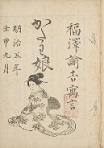 福澤諭吉寓言
かたわ娘
明治五年
壬申九月